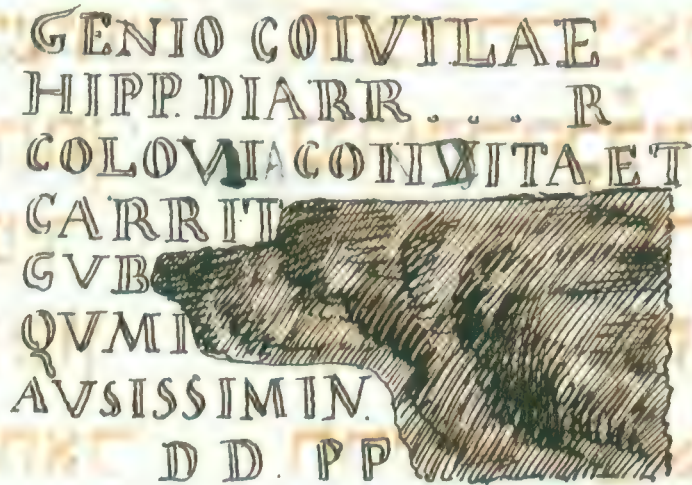 GENIO COIVILAE
HIPP. DIARR . . . . R
COLOVIA CONVITA ET
CARRIT
GVB
QVMI
AVSISSIMIN.
D D. PP